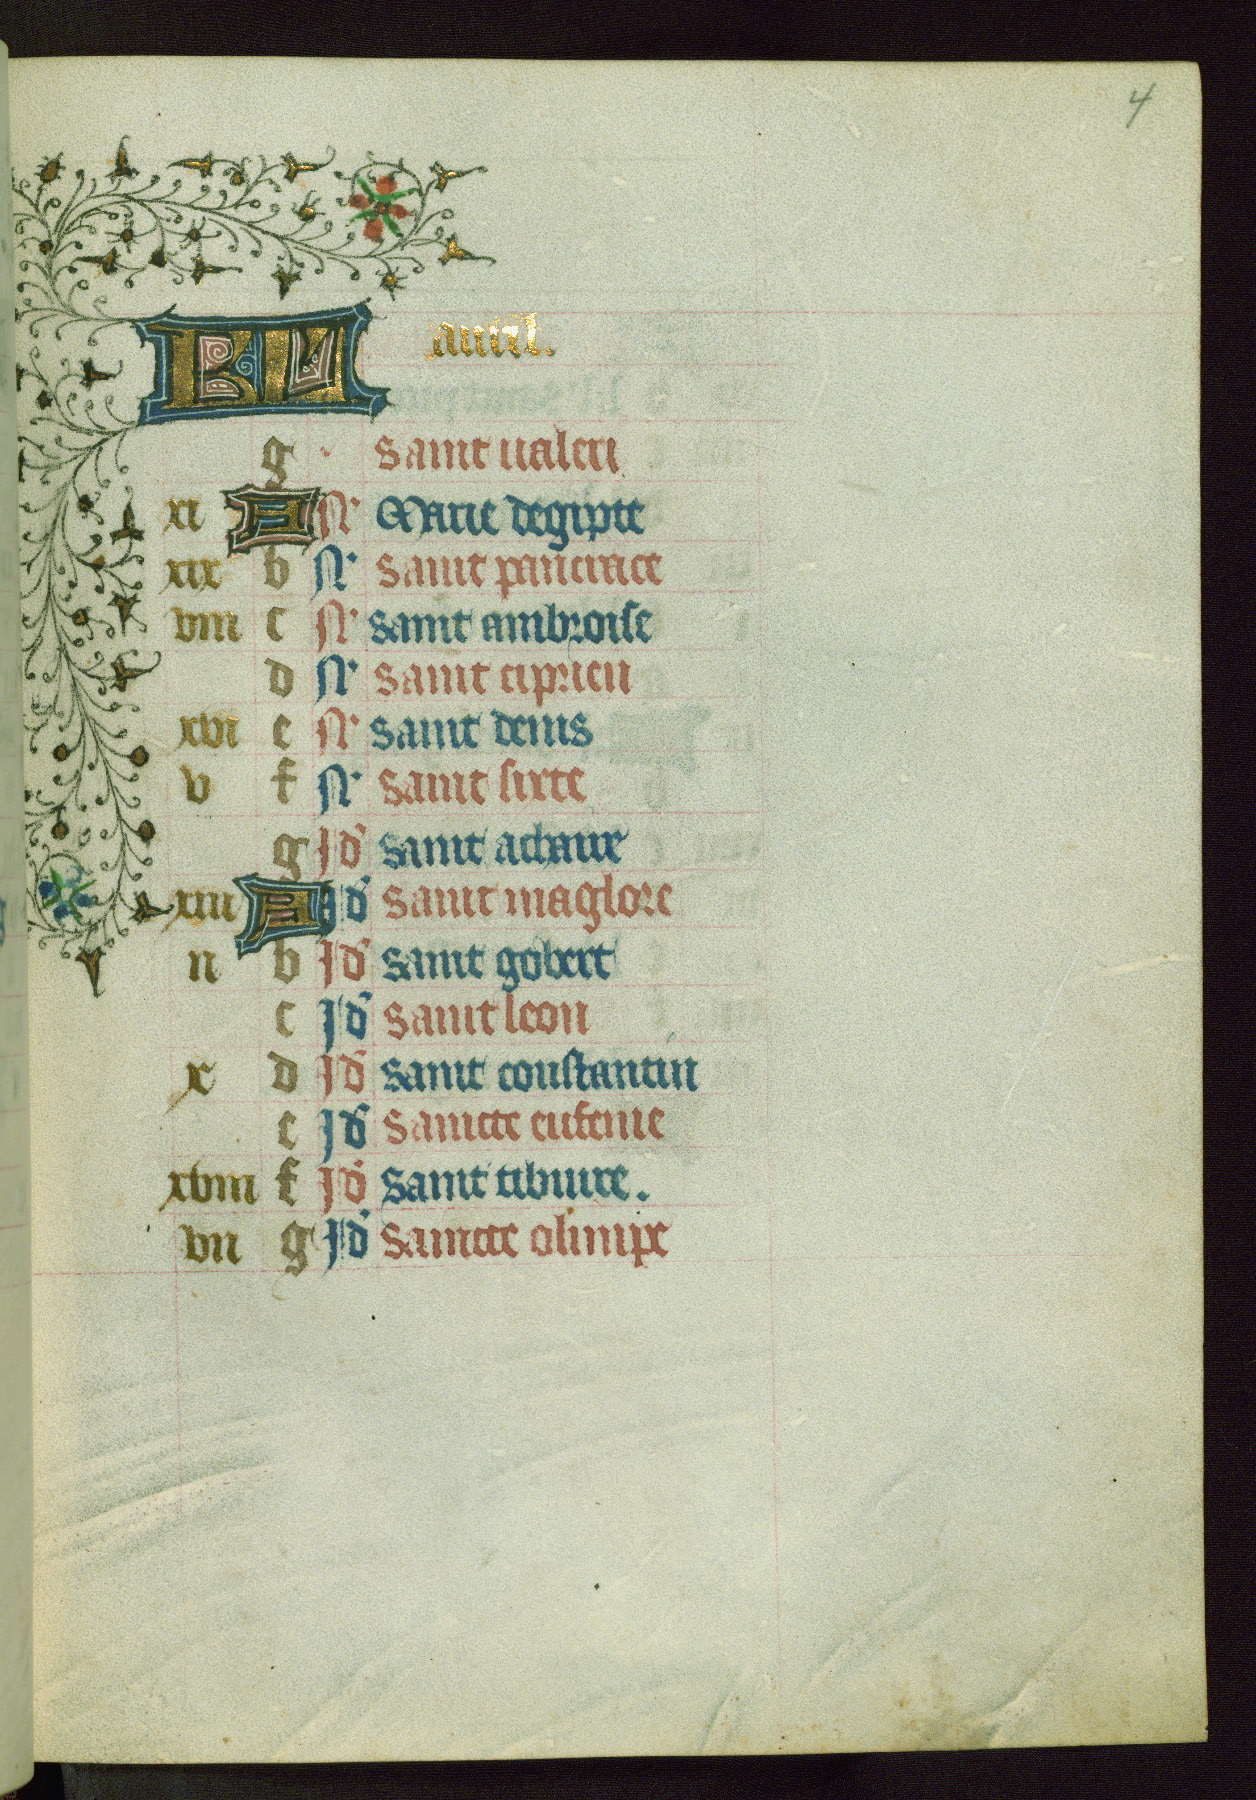 4
KL auril.
g saint ualeri
xi A N Marie degipte
xix b N saint pancrace
viii c N saint ambroise
d N saint ciprien
xvi e N saint denis
v f N saint sixte
g Id saint achaire
xiii A Id saint maglore
ii b Id saint gobert
c Id saint leon
x d Id saint constantin
e Id saincte eufemie
xviii f Id saint tiburce.
vii g Id saincte olimpe